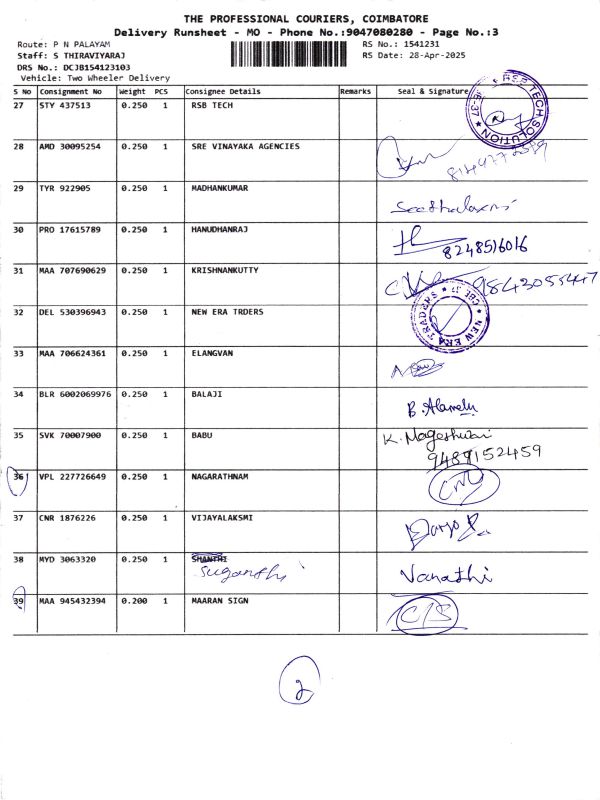 THE PROFESSIONAL COURIERS, COIMBATORE
Delivery Runsheet - MO - Phone No.:9047080280 - Page No.:3
Route: P N PALAYAM
RS No.: 1541231
Staff: S THIRAVIYARAJ
RS Date: 28-Apr-2025
DRS No.: DCJB154123103
Vehicle: Two Wheeler Delivery
S No Consignment No Weight PCS Consignee Details Remarks Seal & Signature
27 STY 437513 0.250 1 RSB TECH
RSB TECH SOLUTION
28 AMD 30095254 0.250 1 SRE VINAYAKA AGENCIES
29 TYR 922905 0.250 1 MADHANKUMAR
30 PRO 17615789 0.250 1 HANUDHANRAJ
8248516016
31 MAA 707690629 0.250 1 KRISHNANKUTTY
9843055447
32 DEL 530396943 0.250 1 NEW ERA TRDERS
NEW ERA TRADERS
33 MAA 706624361 0.250 1 ELANGVAN
34 BLR 6002069976 0.250 1 BALAJI
B. Alamelu
35 SVK 70007900 0.250 1 BABU
K. Nageshwari
9489152459
36 VPL 227726649 0.250 1 NAGARATHNAM
37 CNR 1876226 0.250 1 VIJAYALAKSMI
38 MYD 3063320 0.250 1 SHANTHI
Suganthi
Vanathi
39 MAA 945432394 0.200 1 MAARAN SIGN
C/S
2